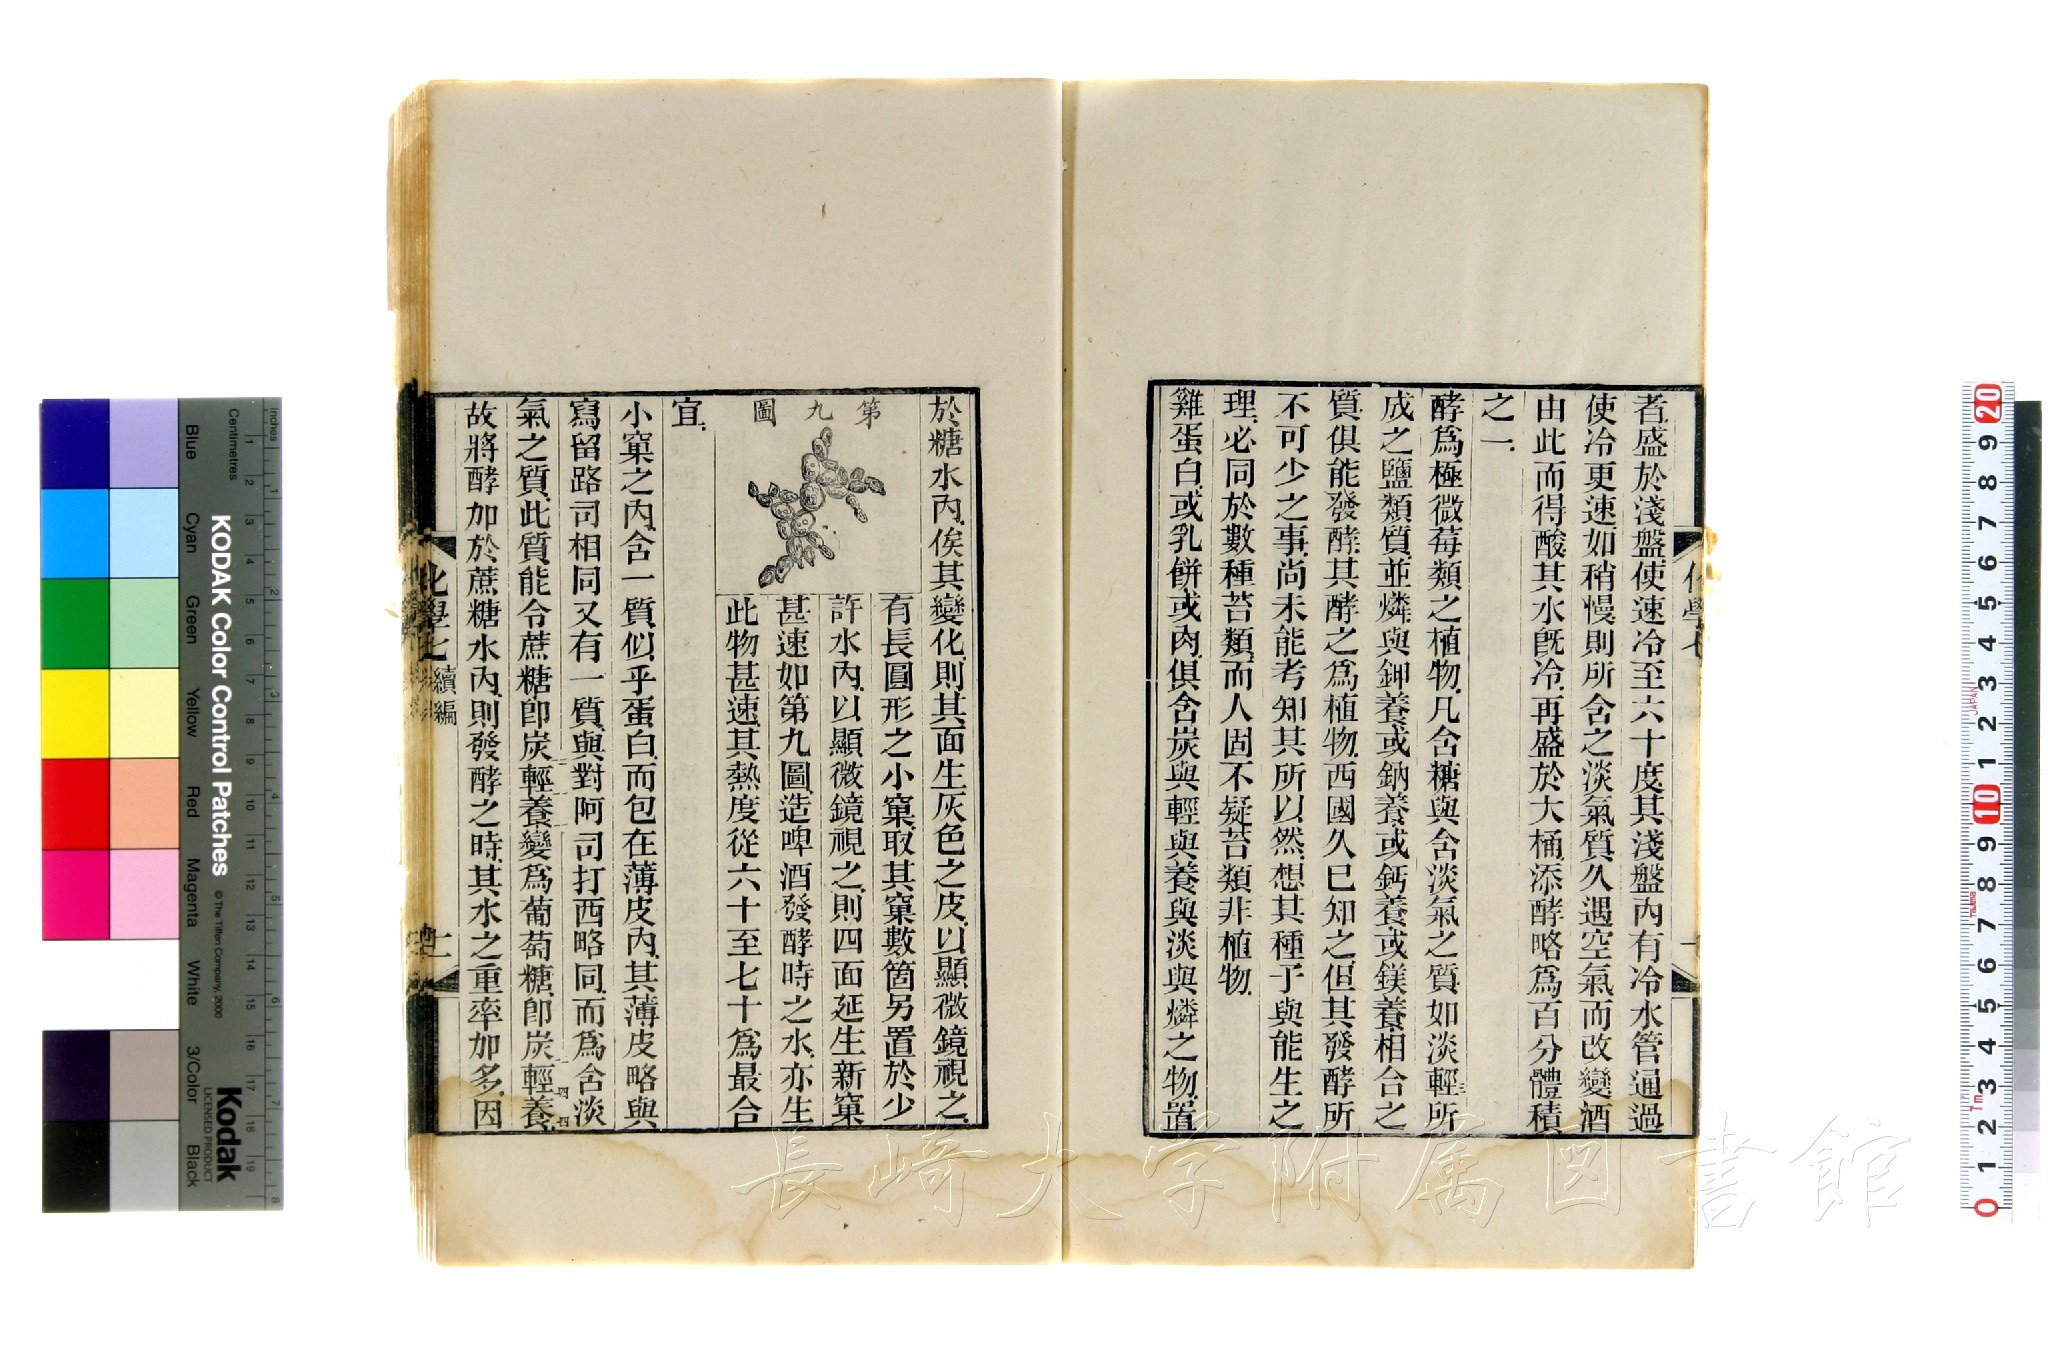 者盛於淺盤使速冷至六十度其淺盤內有冷水管通過
使冷更速如稍慢則所含之淡氣質久遇空氣而改變酒
由此而得酸其水旣冷再盛於大桶添酵略爲百分體積
之一
酵爲極微莓類之植物凡含糖與含淡氣之質如淡輕所
成之鹽類質並燐與鉀養或鈉養或鈣養或鎂養相合之
質俱能發酵其酵之爲植物西國久已知之但其發酵所
不可少之事尚未能考知其所以然想其種子與能生之
理必同於數種苔類而人固不疑苔類非植物
雞蛋白或乳餅或肉俱含炭與輕與養與淡與燐之物置
於糖水內俟其變化則其面生灰色之皮以顯微鏡視之
第九圖
有長圓形之小窠取其窠數箇另置於少
許水內以顯微鏡視之則四面延生新窠
甚速如第九圖造啤酒發酵時之水亦生
此物甚速其熱度從六十至七十爲最合
宜
小窠之內含一質似乎蛋白而包在薄皮內其薄皮略與
寫留路司相同又有一質與對阿司打西略同而爲含淡
氣之質此質能令蔗糖卽炭輕養變爲葡萄糖卽炭輕養
故將酵加於蔗糖水內則發酵之時其水之重率加多因
化學七
續編
長崎大学附属図書館
KODAK Color Control Patches
© The Tiffen Company, 2000
Kodak
LICENSED PRODUCT
Inches
Centimetres
Blue
Cyan
Green
Yellow
Red
Magenta
White
3/Color
Black
20 9 8 7 6 5 4 3 2 1 10 9 8 7 6 5 4 3 2 1 0
JAPAN